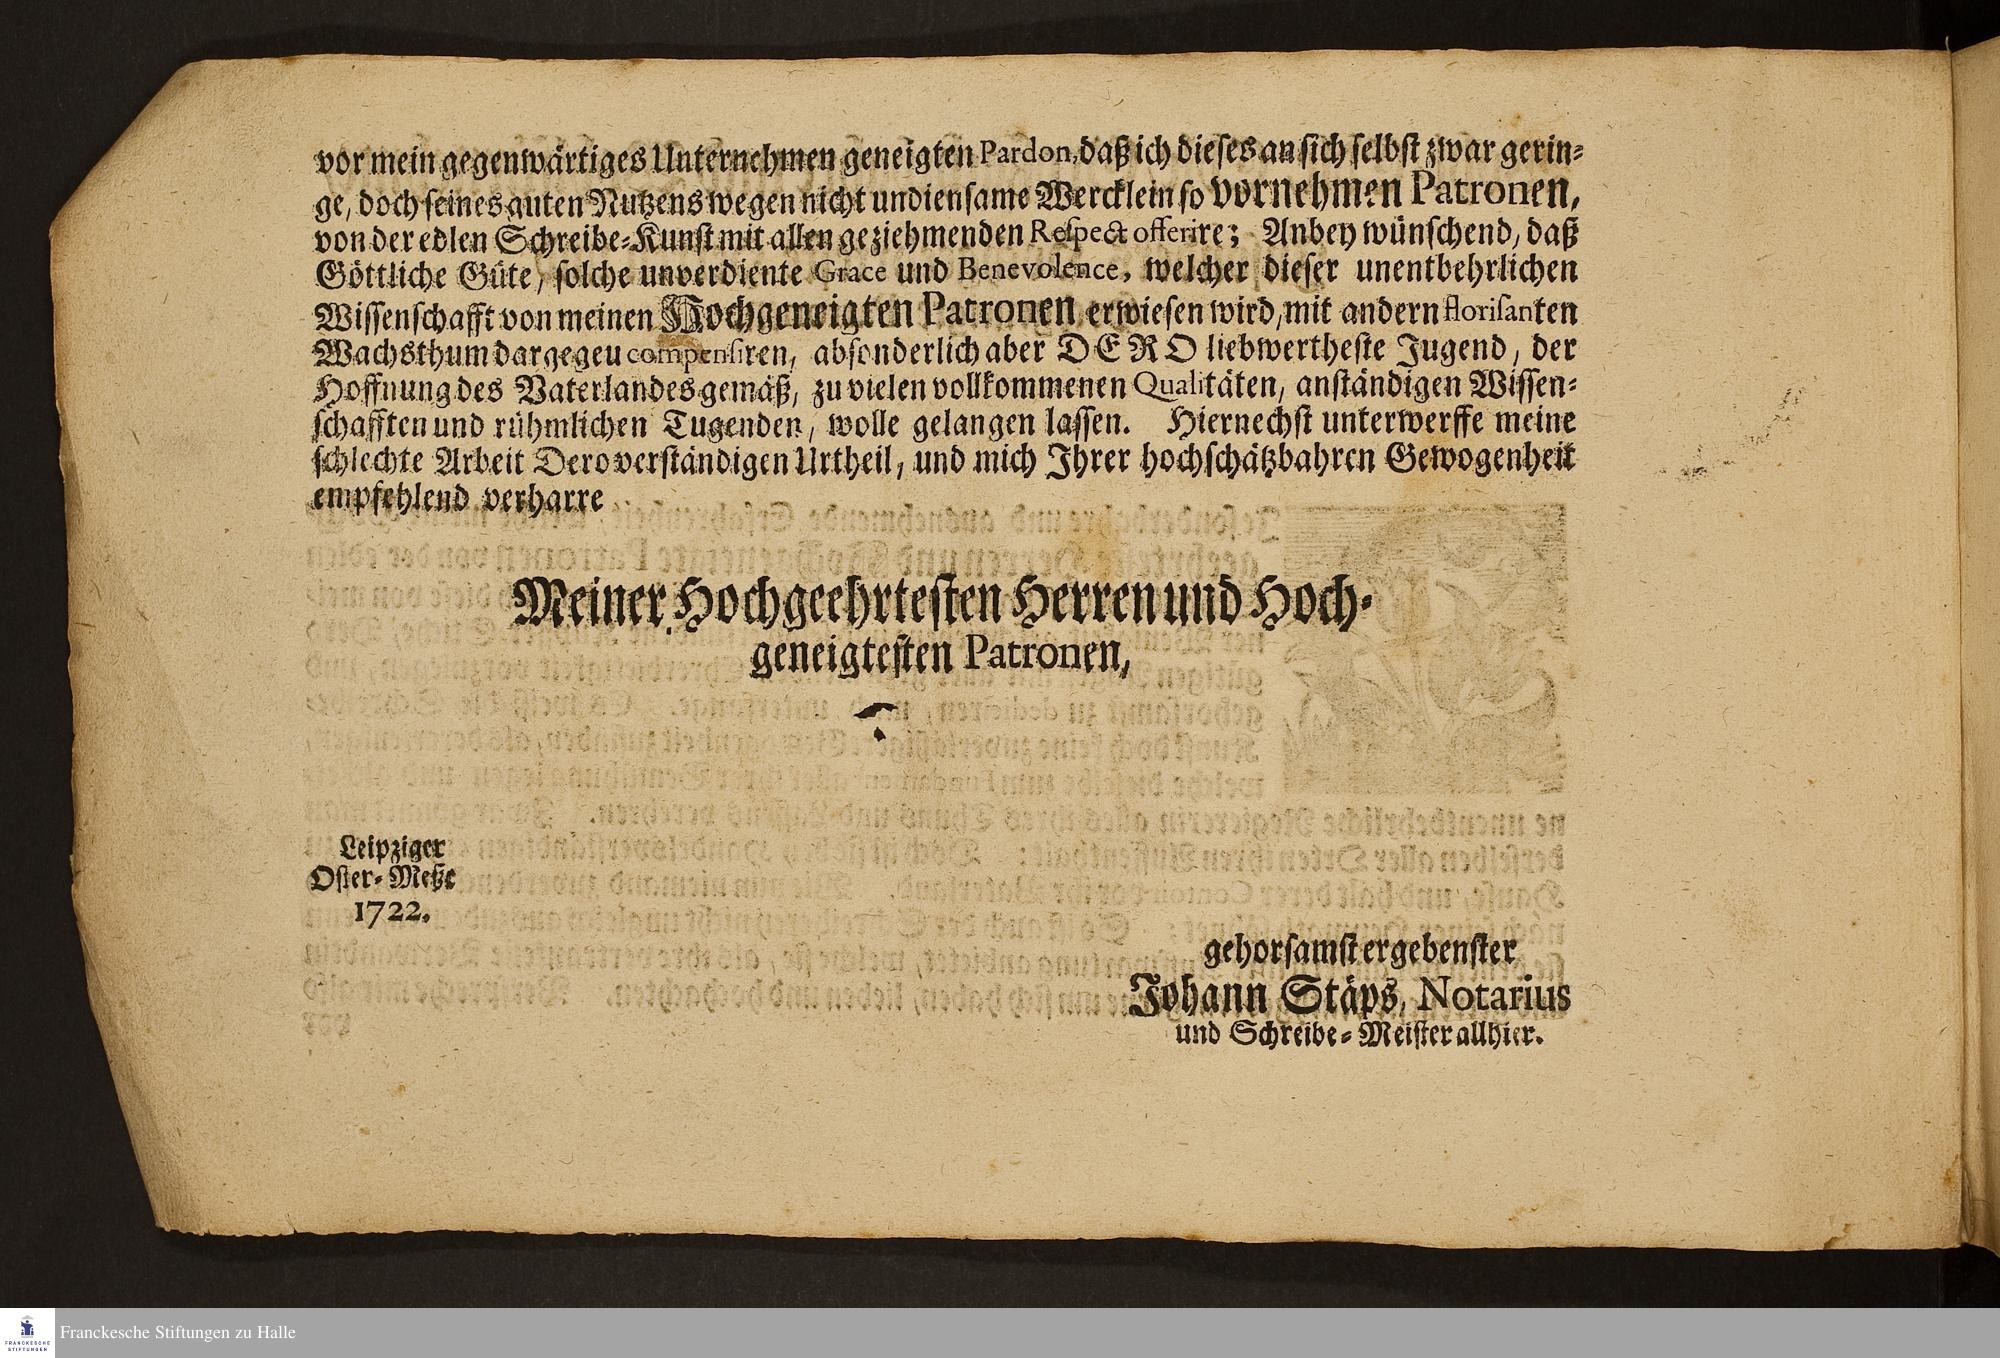 vor mein gegenwärtiges Unternehmen geneigten Pardon, daß ich dieses an sich selbst zwar gerin-
ge, doch seines guten Nutzens wegen nicht undiensame Wercklein so vornehmen Patronen,
von der edlen Schreibe-Kunst mit allen geziehmenden Respect offerire; Anbey wünschend, daß
Göttliche Güte, solche unverdiente Grace und Benevolence, welcher dieser unentbehrlichen
Wissenschafft von meinen Hochgeneigten Patronen erwiesen wird, mit andern florisanten
Wachsthum dargegeu compensiren, absonderlich aber DERO liebwertheste Jugend, der
Hoffnung des Vaterlandes gemäß, zu vielen vollkommenen Qualitäten, anständigen Wissen-
schafften und rühmlichen Tugenden, wolle gelangen lassen. Hiernechst unterwerffe meine
schlechte Arbeit Dero verständigen Urtheil, und mich Ihrer hochschätzbahren Gewogenheit
empfehlend verharre
Meiner Hochgeehrtesten Herren und Hoch-
geneigtesten Patronen,
Leipziger
Oster-Meße
1722.
gehorsamst ergebenster
Johann Stäps, Notarius
und Schreibe-Meister allhier.
FRANCKESCHE
STIFTUNGEN
Franckesche Stiftungen zu Halle